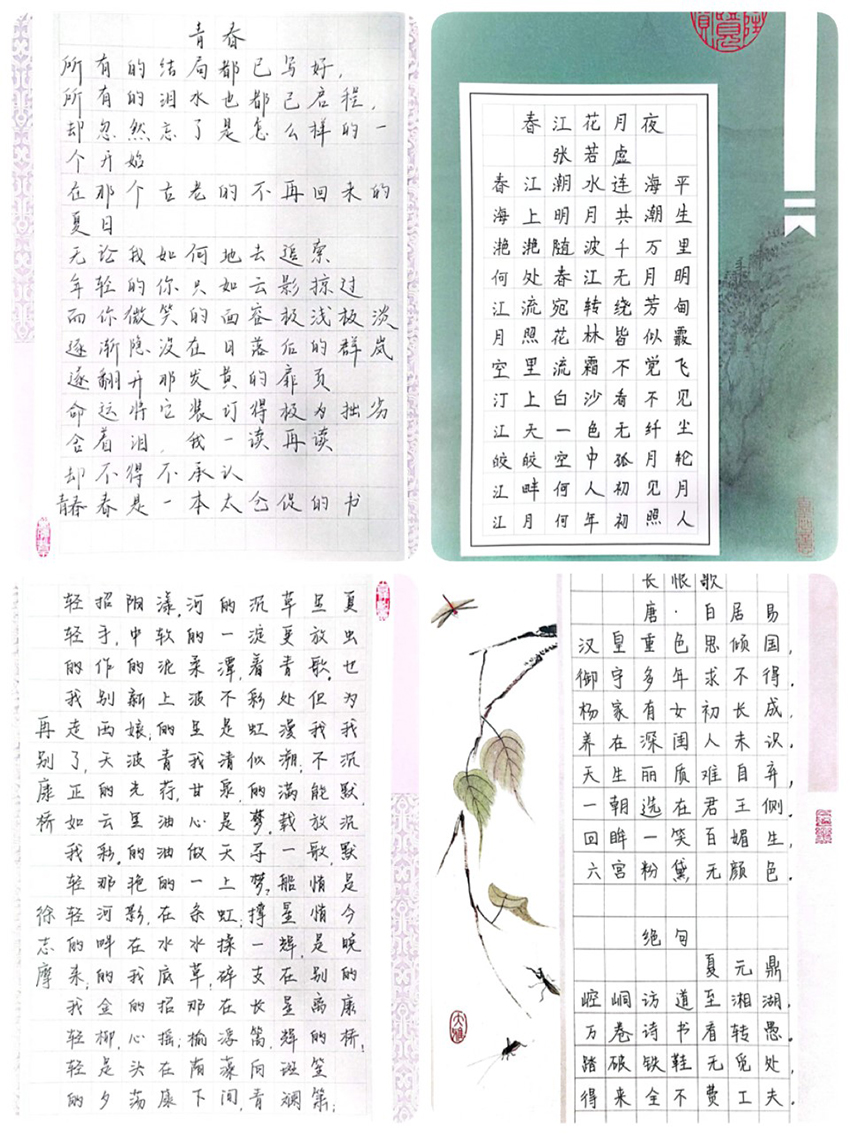 青春
所有的结局都已写好,
所有的泪水也都已启程,
却忽然忘了是怎么样的一
个开始
在那个古老的不再回来的
夏日
无论我如何地去追索
年轻的你只如云影掠过
而你微笑的面容极浅极淡
逐渐隐没在日落后的群岚
遂翻开那发黄的扉页
命运将它装订得极为拙劣
含着泪,我一读再读
却不得不承认
青春春是一本太仓促的书
春江花月夜
张若虚
春江潮水连海平
海上明月共潮生
滟滟随波千万里
何处春江无月明
江流宛转绕芳甸
月照花林皆似霰
空里流霜不觉飞
汀上白沙看不见
江天一色无纤尘
皎皎空中孤月轮
江畔何人初见月
江月何年初照人
再别康桥 徐志摩
轻轻的我走了,正如我轻轻的来,我轻轻的
招手,作别西天的云彩,那河畔的金柳,是夕
阳中的新娘;波光里的艳影,在我的心头荡
漾,软泥上的青荇,油油的在水底招摇;在康
河的柔波里我甘心做一条水草,那榆荫下
的一潭,不是清泉,是天上虹;揉碎在浮藻间,
沉淀着彩虹似的梦,寻梦,撑一支长篙,向青
草更青处漫溯,满载一船星辉,在星辉斑斓
里放歌,但我不能放歌,悄悄是别离的笙箫;
夏虫也为我沉默,沉默是今晚的康桥;
长恨歌
唐·白居易
汉皇重色思倾国,
御宇多年求不得。
杨家有女初长成,
养在深闺人未识。
天生丽质难自弃,
一朝选在君王侧。
回眸一笑百媚生,
六宫粉黛,无颜色。
绝句
夏元鼎
崆峒访道至湘湖,
万卷诗书看转愚。
踏破铁鞋无觅处,
得来全不费工夫。